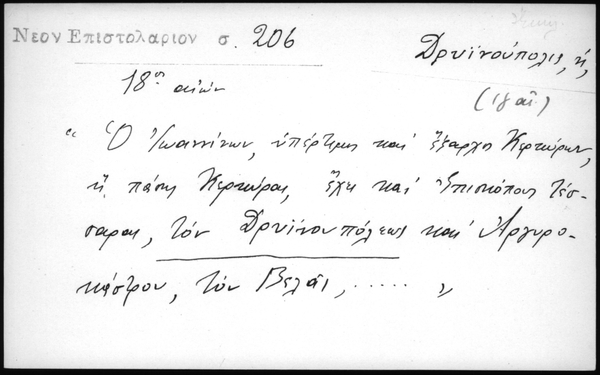 Νεον Επιστολαριον σ. 206
Δρυϊνούπολις, ἡ,
18ος αἰών
(18 αἰ.)
"Ὁ Ἰωαννίνων, ὑπέρτιμος καὶ ἔξαρχος Κερκύρων,
ἢ πάσης Κερκύρας, ἔχει καὶ Ἐπισκόπους τέσ-
σαρας, τὸν Δρυϊνουπόλεως καὶ Ἀργυρο-
κάστρου, τὸν Βελᾶς, ..... "